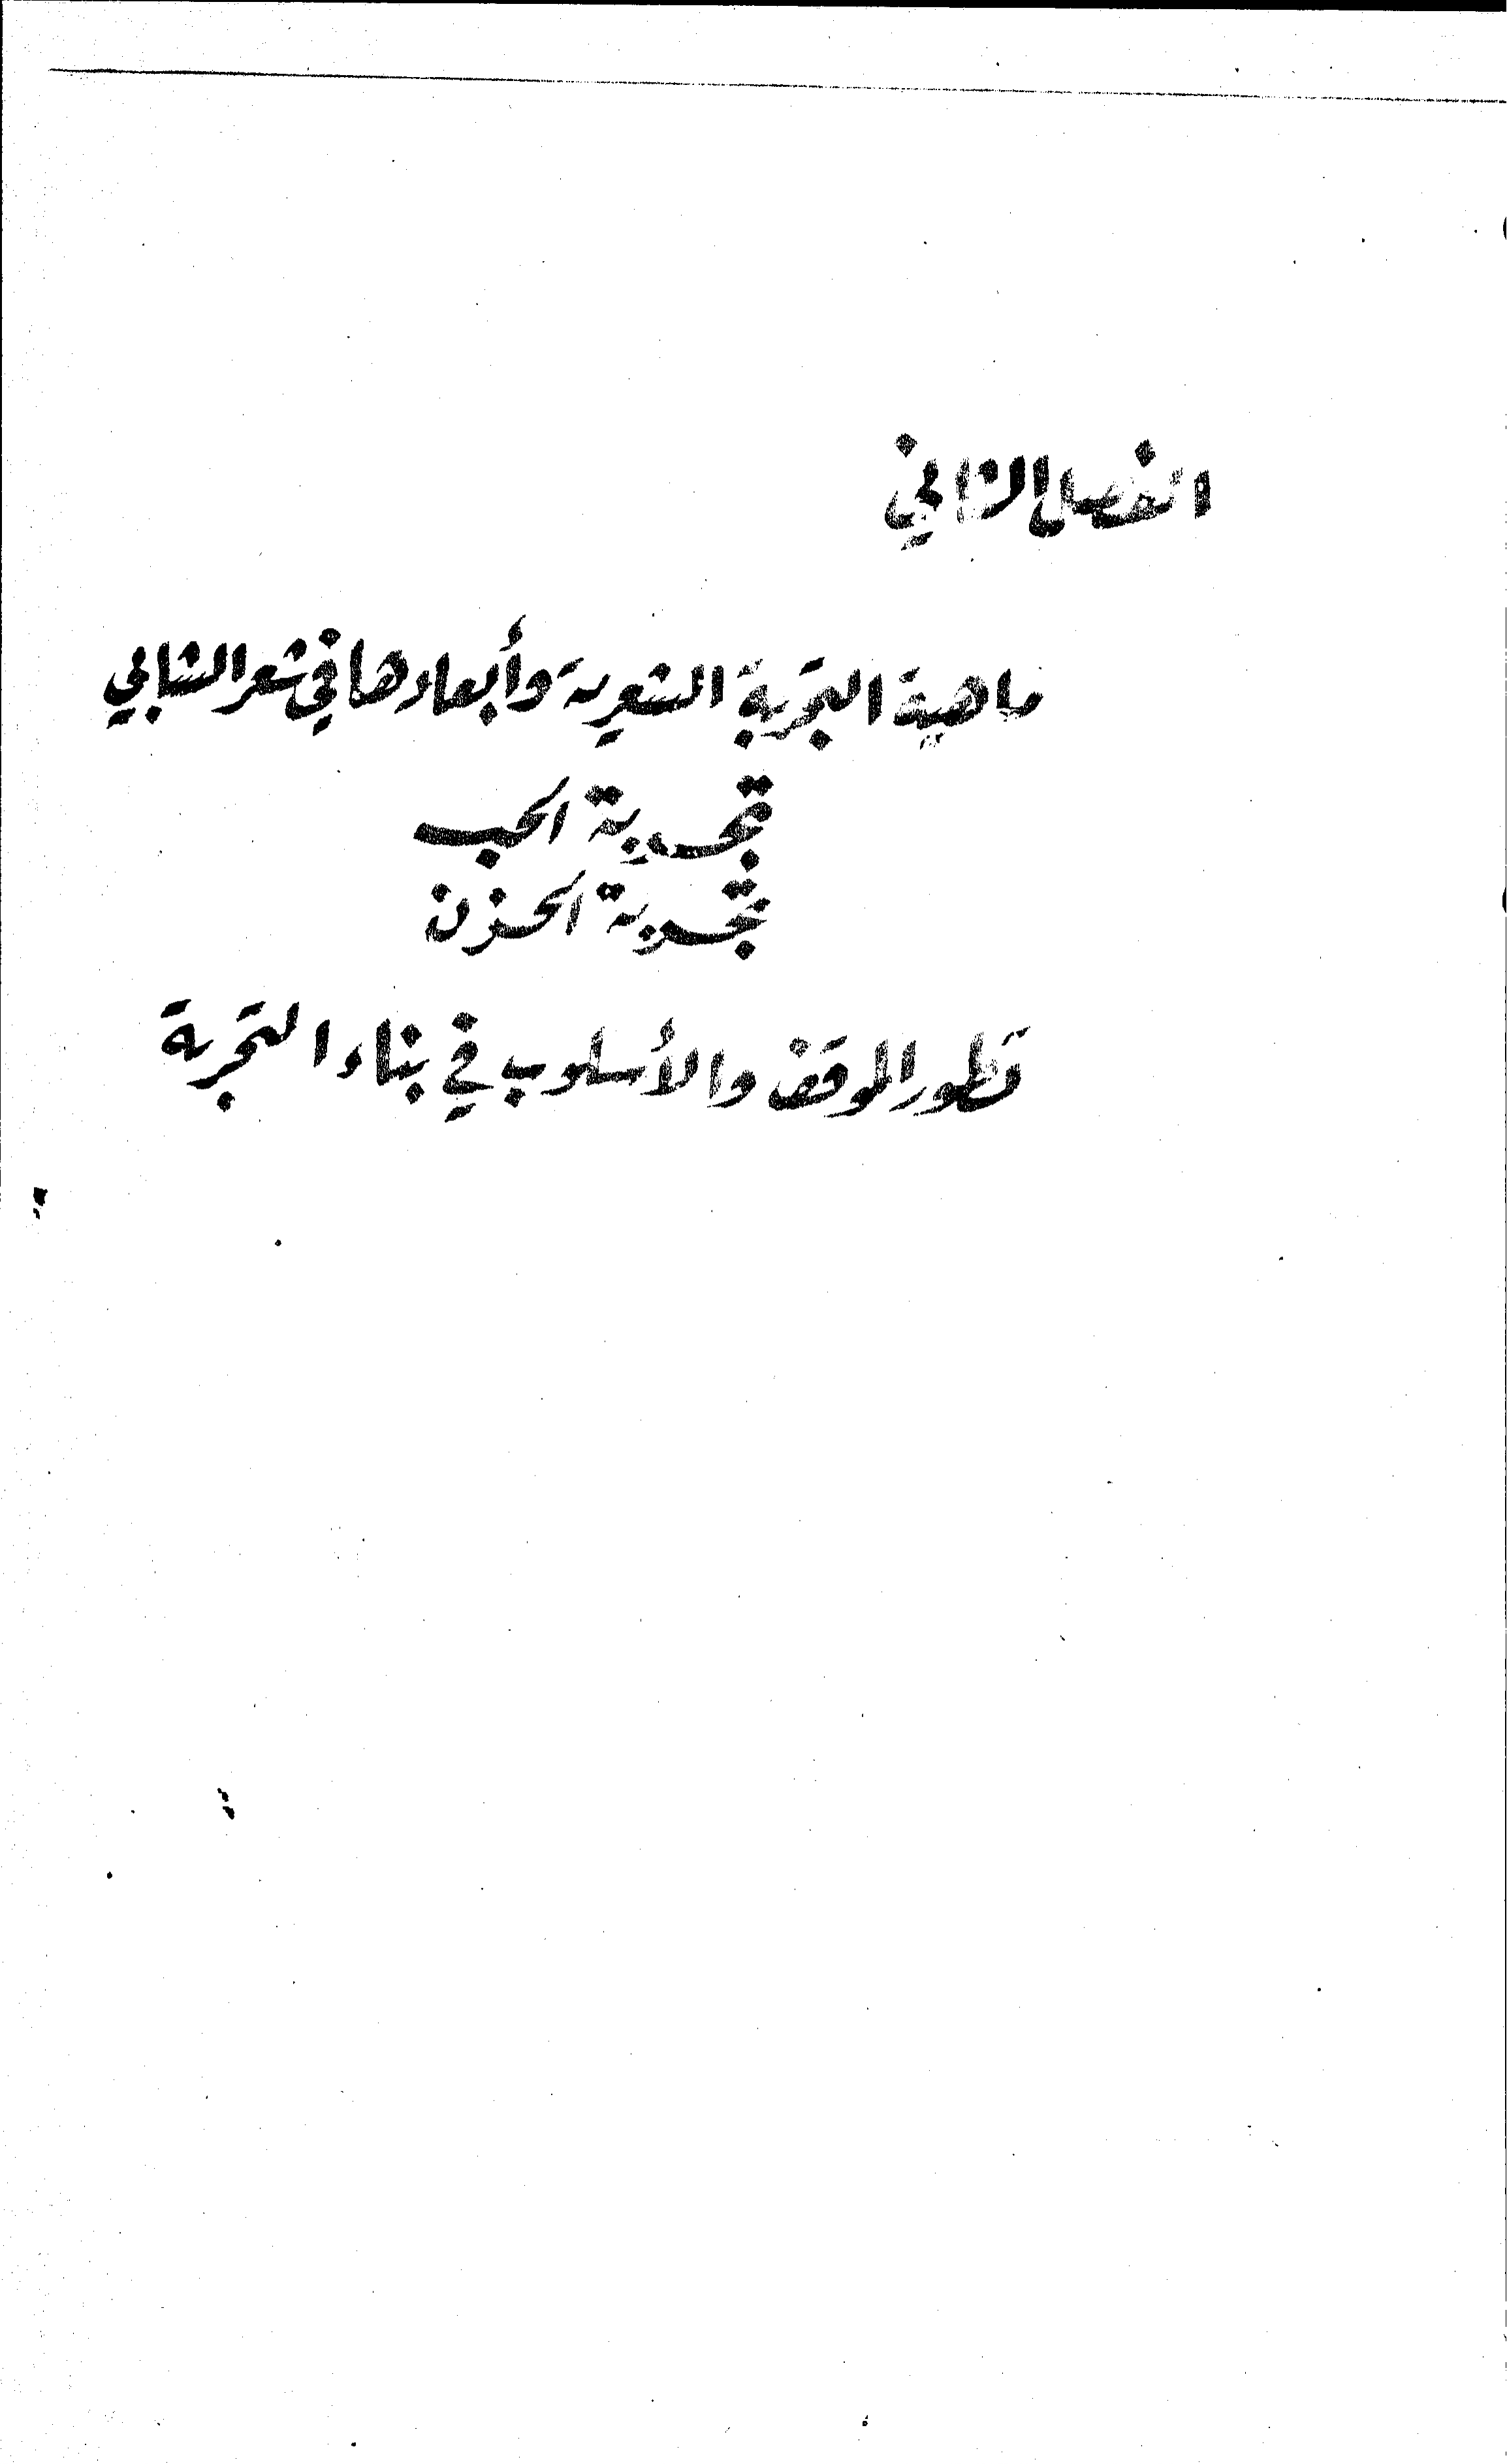 الفصل الثاني
ماهية التجربة الشعرية وأبعادها في شعر الشابي
تجربة الحب
تجربة الحزن
تطور الموقف والأسلوب في بناء التجربة